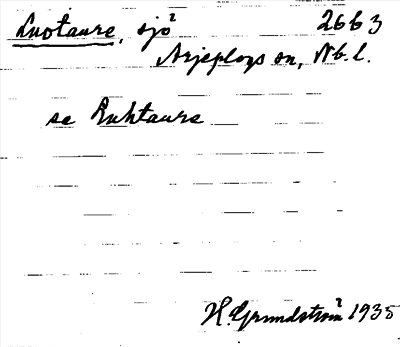 Luotaure, sjö 2663
Arjeplogs sn, Nb.l.
se Luhtaure
H. Grundström 1935